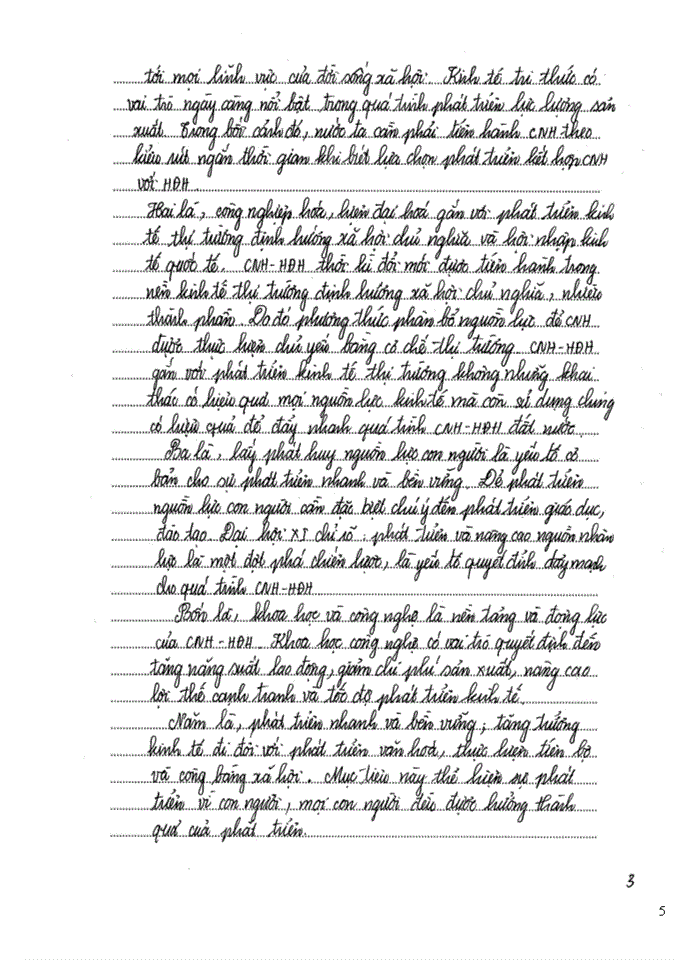 tới mọi lĩnh vực của đời sống xã hội. Kinh tế tri thức có
vai trò ngày càng nổi bật trong quá trình phát triển lực lượng sản
xuất. Trong bối cảnh đó, nước ta cần phải tiến hành CNH theo
kiểu rút ngắn thời gian khi biết lựa chọn phát triển kết hợp CNH
với HĐH.
Hai là, công nghiệp hoá, hiện đại hoá gắn với phát triển kinh
tế thị trường định hướng xã hội chủ nghĩa và hội nhập kinh
tế quốc tế. CNH-HĐH thời kì đổi mới được tiến hành trong
nền kinh tế thị trường định hướng xã hội chủ nghĩa, nhiều
thành phần. Do đó phương thức phân bổ nguồn lực để CNH
được thực hiện chủ yếu bằng cơ chế thị trường. CNH-HĐH
gắn với phát triển kinh tế thị trường không những khai
thác có hiệu quả mọi nguồn lực kinh tế mà còn sử dụng chúng
có hiệu quả để đẩy nhanh quá trình CNH-HĐH đất nước.
Ba là, lấy phát huy nguồn lực con người là yếu tố cơ
bản cho sự phát triển nhanh và bền vững. Để phát triển
nguồn lực con người cần đặc biệt chú ý đến phát triển giáo dục,
đào tạo. Đại hội XI chỉ rõ: phát triển và nâng cao nguồn nhân
lực là một đột phá chiến lược, là yếu tố quyết định đẩy mạnh
cho quá trình CNH-HĐH
Bốn là, khoa học và công nghệ là nền tảng và động lực
của CNH-HĐH. Khoa học công nghệ có vai trò quyết định đến
tăng năng suất lao động, giảm chi phí sản xuất, nâng cao
lợi thế cạnh tranh và tốc độ phát triển kinh tế.
Năm là, phát triển nhanh và bền vững; tăng trưởng
kinh tế đi đôi với phát triển văn hoá, thực hiện tiến bộ
và công bằng xã hội. Mục tiêu này thể hiện sự phát
triển vì con người, mọi con người đều được hưởng thành
quả của phát triển.
3
5